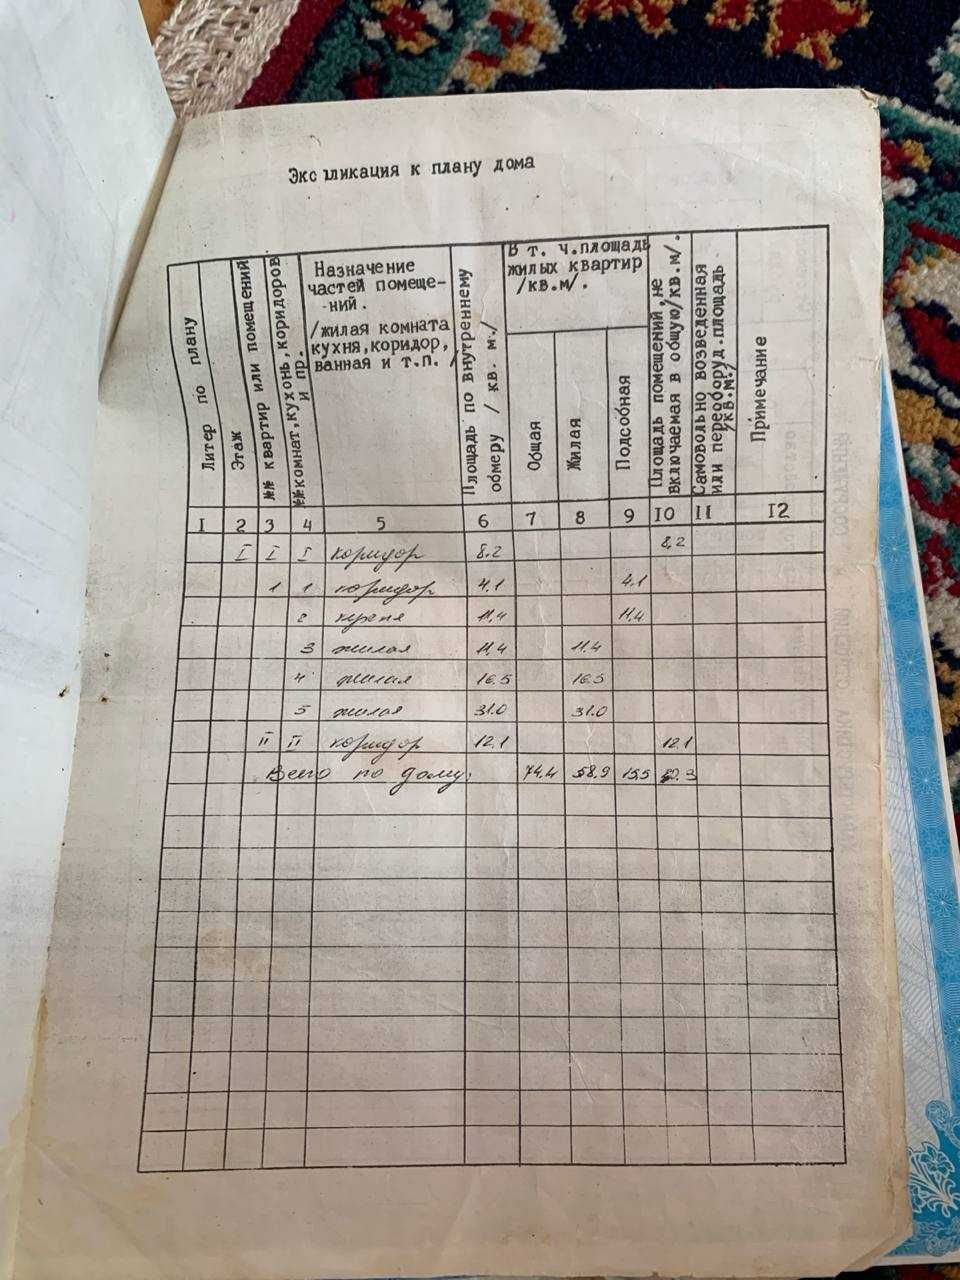 Экспликация к плану дома
Литер по плану
Этаж
№№ квартир или помещений
№№ комнат, кухонь, коридоров и пр.
Назначение
частей помеще-
-ний.
/жилая комната
кухня, коридор,
ванная и т.п. /
Площадь по внутреннему
обмеру / кв. м./
В т. ч. площадь
жилых квартир
/кв.м/.
Общая
Жилая
Подсобная
Площадь помещений, не
включаемая в общую/кв.м/.
Самовольно возведенная
или переоборуд.площадь
/кв.м./
Примечание
I 2 3 4 5 6 7 8 9 10 11 12
I I I коридор 8.2 8,2
1 1 коридор 4.1 4.1
2 кухня 11,4 11,4
3 жилая 11.4 11.4
4 жилая 16.5 16.5
5 жилая 31.0 31.0
II II коридор 12.1 12.1
Всего по дому: 74.4 58.9 15.5 20.3